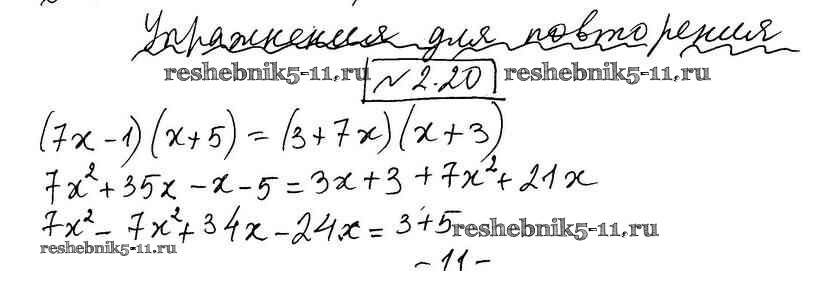 Упражнения для повторения
reshebnik5-11.ru №2.20 reshebnik5-11.ru
(7x-1)(x+5)=(3+7x)(x+3)
7x²+35x-x-5=3x+3+7x²+21x
7x²-7x²+34x-24x=3+5 reshebnik5-11.ru
reshebnik5-11.ru
-11-